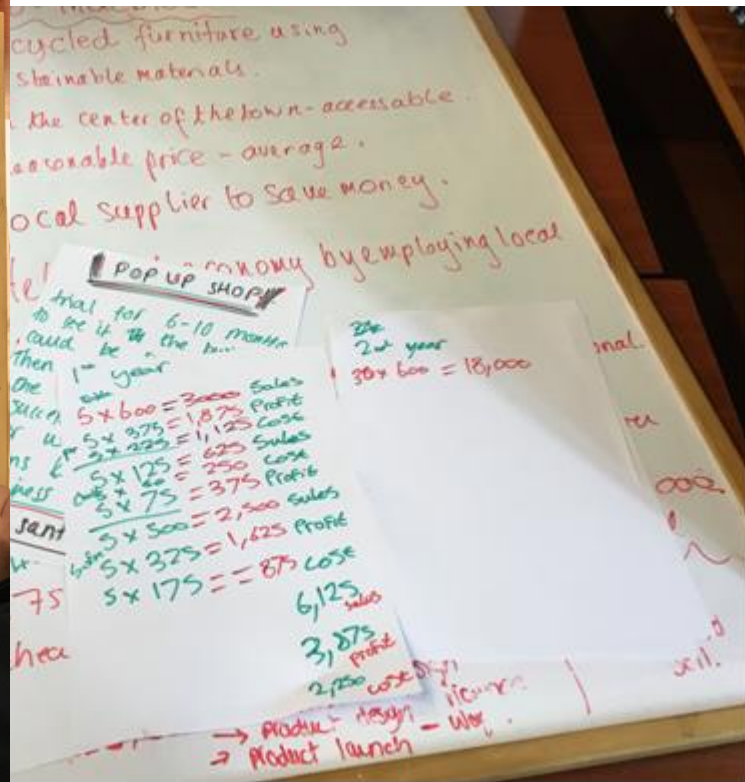 cycled furniture using
stainable materials.
the center of the town - accessable.
easonable price - average.
ocal supplier to save money.
onomy by employing local
POP UP SHOP
trial for 6-10 months
to see if
caud be
Then
one
1st year
5 x 600 = 3000 Sales
5 x 375 = 1,875 Profit
5 x 225 = 1,125 Cost
5 x 125 = 625 Sales
= 250 Cost
5 x 75 = 375 Profit
5 x 500 = 2,500 Sales
5 x 325 = 1,625 Profit
5 x 175 = = 875 Cost
6,125 sales
3,875 profit
2,250 cost
2nd year
30 x 600 = 18,000
onal.
iness
sant
75
hea
→ product design
→ Product launch -